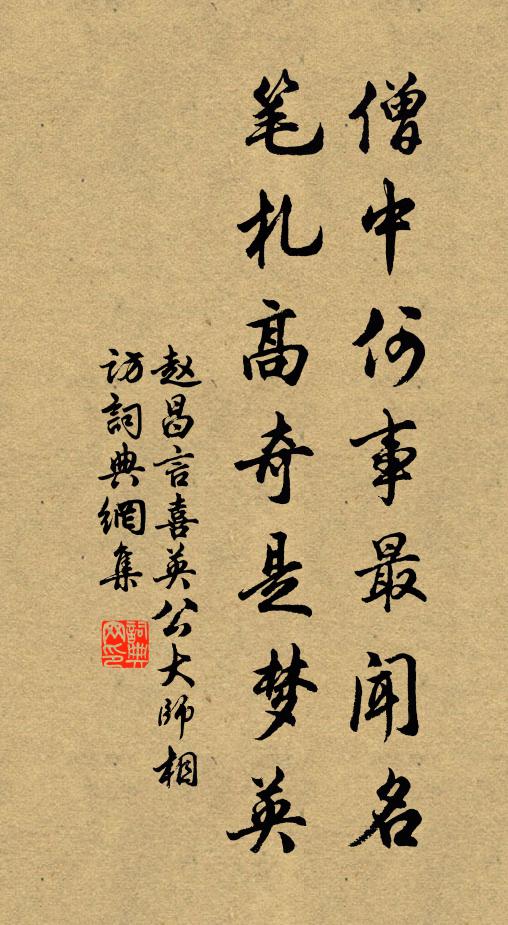 僧中何事最闻名
笔札高奇是梦英
赵昌言喜英公大师相
访詞典網集
詞典网印